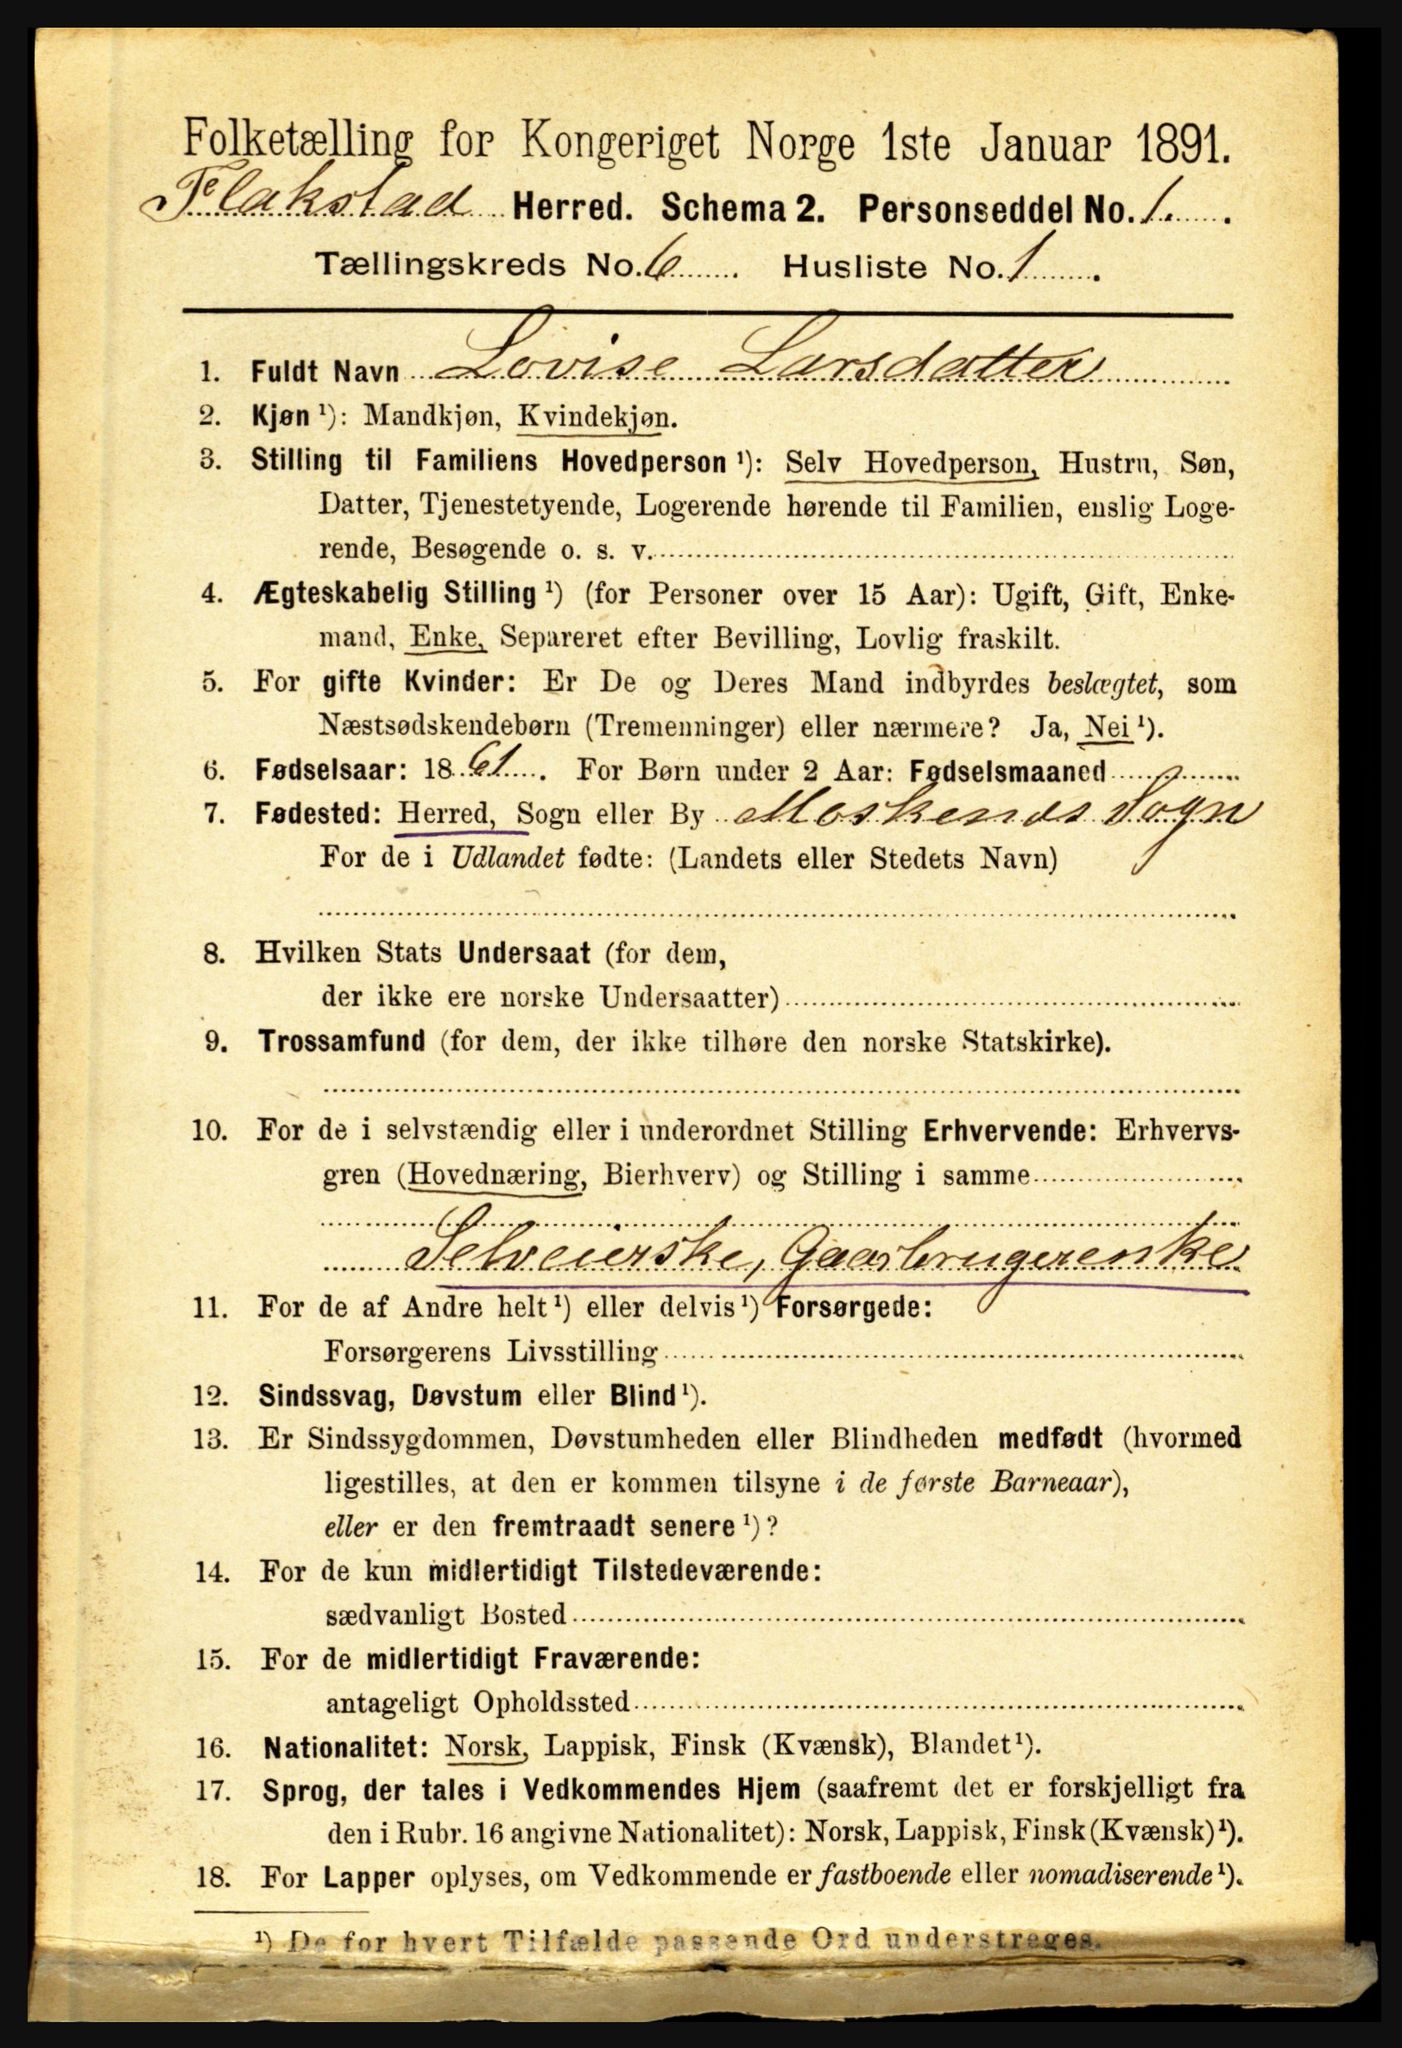 Folketælling for Kongeriget Norge 1ste Januar 1891.
Flakstad Herred. Schema 2. Personseddel No. 1.
Tællingskreds No. 6. Husliste No. 1.
1. Fuldt Navn Lovise Larsdatter
2. Kjøn ¹): Mandkjøn, Kvindekjøn.
3. Stilling til Familiens Hovedperson ¹): Selv Hovedperson, Hustru, Søn,
Datter, Tjenestetyende, Logerende hørende til Familien, enslig Loge-
rende, Besøgende o. s. v.
4. Ægteskabelig Stilling ¹) (for Personer over 15 Aar): Ugift, Gift, Enke-
mand, Enke, Separeret efter Bevilling, Lovlig fraskilt.
5. For gifte Kvinder: Er De og Deres Mand indbyrdes beslægtet, som
Næstsødskendebørn (Tremenninger) eller nærmere? Ja, Nei ¹).
6. Fødselsaar: 1861. For Børn under 2 Aar: Fødselsmaaned
7. Fødested: Herred, Sogn eller By Moskenæs Sogn
For de i Udlandet fødte: (Landets eller Stedets Navn)
8. Hvilken Stats Undersaat (for dem,
der ikke ere norske Undersaatter)
9. Trossamfund (for dem, der ikke tilhøre den norske Statskirke).
10. For de i selvstændig eller i underordnet Stilling Erhvervende: Erhvervs-
gren (Hovednæring, Bierhverv) og Stilling i samme
Selveierske, Gaarbrugerenke
11. For de af Andre helt ¹) eller delvis ¹) Forsørgede:
Forsørgerens Livsstilling
12. Sindssvag, Døvstum eller Blind ¹).
13. Er Sindssygdommen, Døvstumheden eller Blindheden medfødt (hvormed
ligestilles, at den er kommen tilsyne i de første Barneaar),
eller er den fremtraadt senere ¹)?
14. For de kun midlertidigt Tilstedeværende:
sædvanligt Bosted
15. For de midlertidigt Fraværende:
antageligt Opholdssted
16. Nationalitet: Norsk, Lappisk, Finsk (Kvænsk), Blandet ¹).
17. Sprog, der tales i Vedkommendes Hjem (saafremt det er forskjelligt fra
den i Rubr. 16 angivne Nationalitet): Norsk, Lappisk, Finsk (Kvænsk) ¹).
18. For Lapper oplyses, om Vedkommende er fastboende eller nomadiserende ¹).
¹) De for hvert Tilfælde passende Ord understreges.